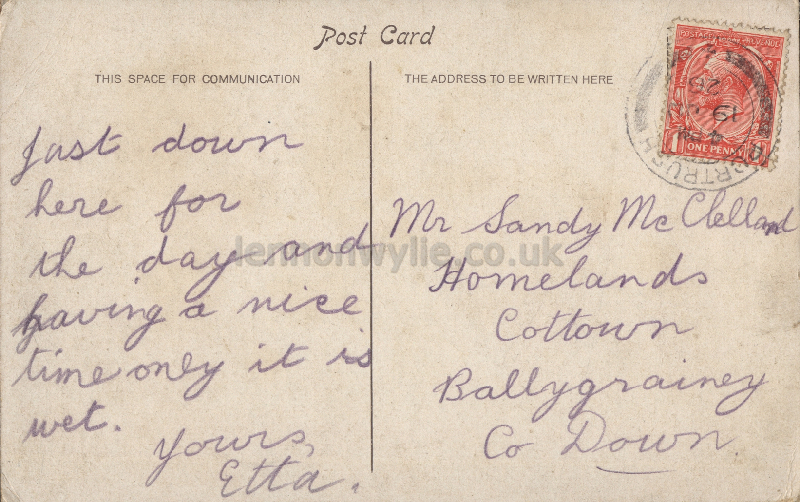 Post Card
THIS SPACE FOR COMMUNICATION
THE ADDRESS TO BE WRITTEN HERE
Just down
here for
the day and
having a nice
time only it is
wet.
Yours,
Etta.
Mr Sandy McClelland
Homelands
Cottown
Ballygrainey
Co Down
lennonwylie.co.uk
POSTAGE REVENUE
1 ONE PENNY 1
PORTRUSH
19